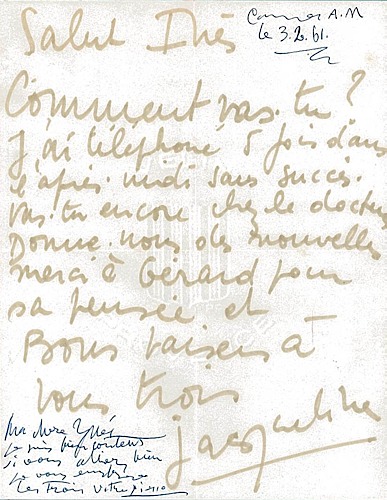 Salut Inès
Cannes A.M
le 3.2.61.
Comment vas-tu?
J'ai téléphoné 5 fois dans
l'après-midi sans succès.
vas-tu encore chez le docteur
Donne-nous des nouvelles
merci à Gérard pour
sa pensée et
Bons baisers à
vous trois
Jacqueline
Ma chère Ynés
je suis bien content
si vous allez bien
je vous embrasse
les trois votre